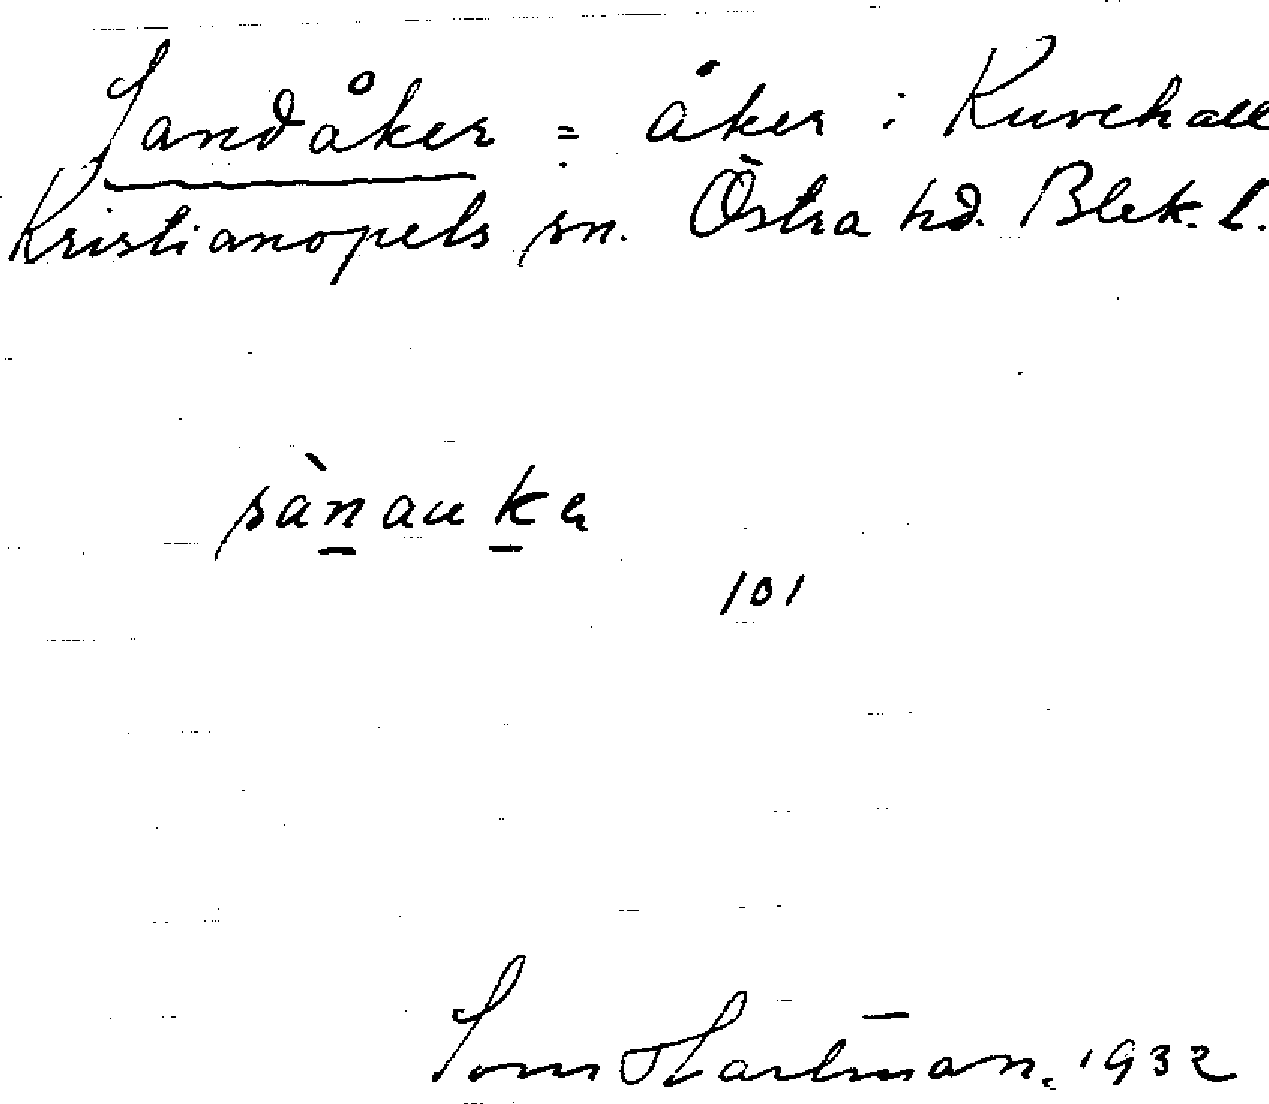 Sandåker = åker i Kurehall
Kristianopels sn. Östra hd. Blek. l.
sànauka
101
Tom Hartman. 1932